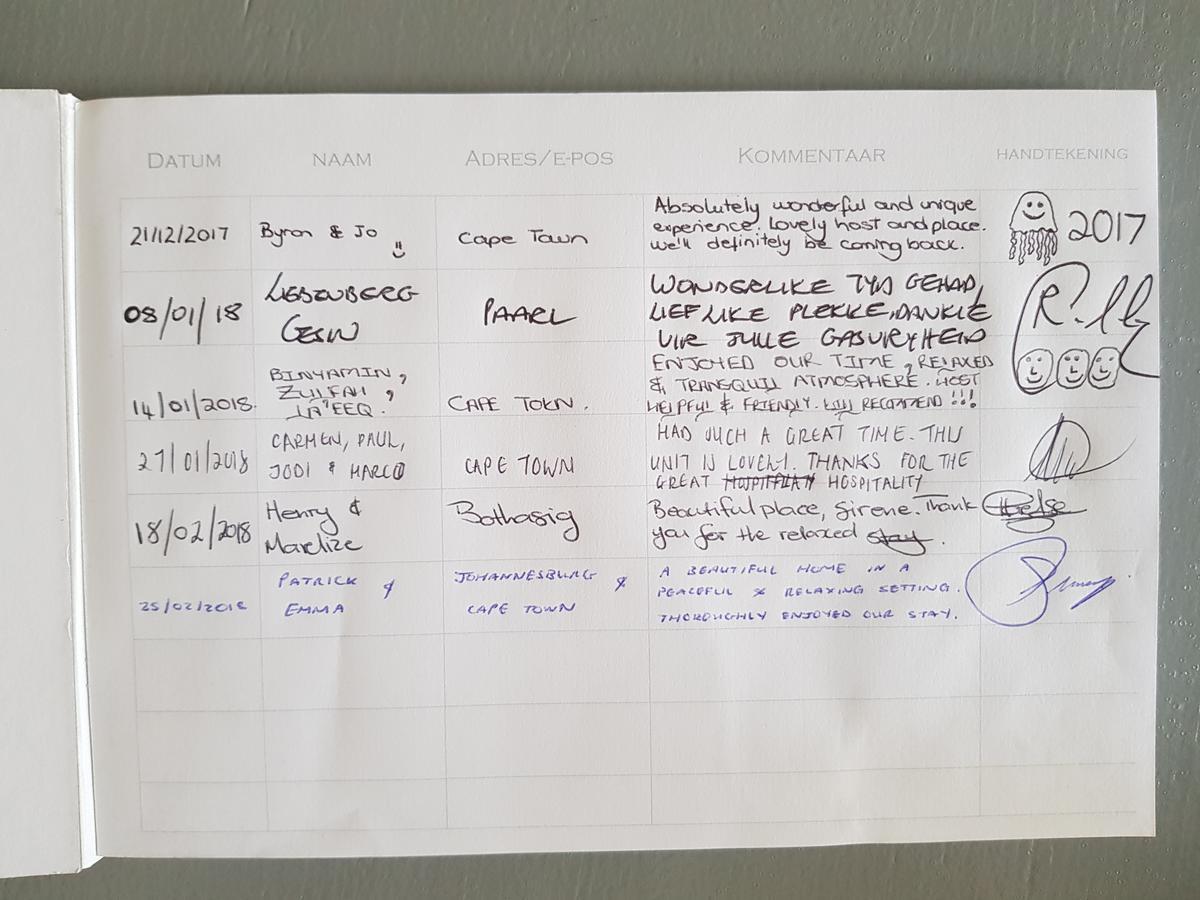 DATUM NAAM ADRES/E-POS KOMMENTAAR HANDTEKENING
21/12/2017 Byron & Jo Cape Town Absolutely wonderful and unique
experience. Lovely host and place.
We'll definitely be coming back.
2017
08/01/18 LIEBENBERG
GESIN
PAARL
WONDERLIKE TYD GEHAD,
LIEFLIKE PLEKKE, DANKIE
VIR JULLE GASVRYHEID
14/01/2018. BINYAMIN,
ZULFAH,
LA'EEQ.
CAPE TOWN.
ENJOYED OUR TIME, RELAXED
& TRANQUIL ATMOSPHERE. HOST
HELPFUL & FRIENDLY. WILL RECOMMEND !!!
27/01/2018 CARMEN, PAUL,
JODI & MARCO
CAPE TOWN
HAD SUCH A GREAT TIME. THIS
UNIT IS LOVELY. THANKS FOR THE
GREAT HOSPITALITY
18/02/2018 Henry &
Marelize
Bothasig
Beautiful place, Sirene. Thank
you for the relaxed stay.
25/02/2018 PATRICK &
EMMA
JOHANNESBURG &
CAPE TOWN
A BEAUTIFUL HOME IN A
PEACEFUL & RELAXING SETTING.
THOROUGHLY ENJOYED OUR STAY.